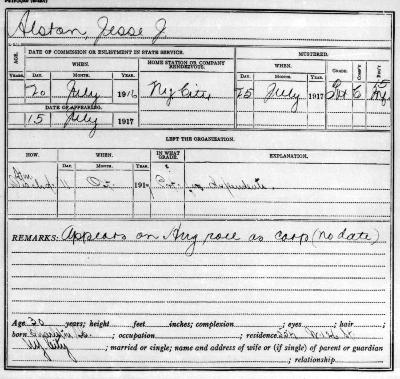 Alston Jesse J.
AGE. DATE OF COMMISSION OR ENLISTMENT IN STATE SERVICE. MUSTERED.
WHEN. HOME STATION OR COMPANY RENDEZVOUS. WHEN. GRADE. COMP'Y REG'T
YEARS. DAY. MONTH. YEAR. DAY. MONTH. YEAR.
20 July 1916 Ny City 25 July 1917 15
DATE OF APPEARING.
15 July 1917
LEFT THE ORGANIZATION.
HOW. WHEN. IN WHAT GRADE. EXPLANATION.
DAY. MONTH. YEAR.
11 191 dependents.
REMARKS: Appears on Aug roll as corp (no date)
Age 30 years; height feet inches; complexion ; eyes ; hair ;
born ; occupation ; residence
Ny City ; married or single; name and address of wife or (if single) of parent or guardian
; relationship